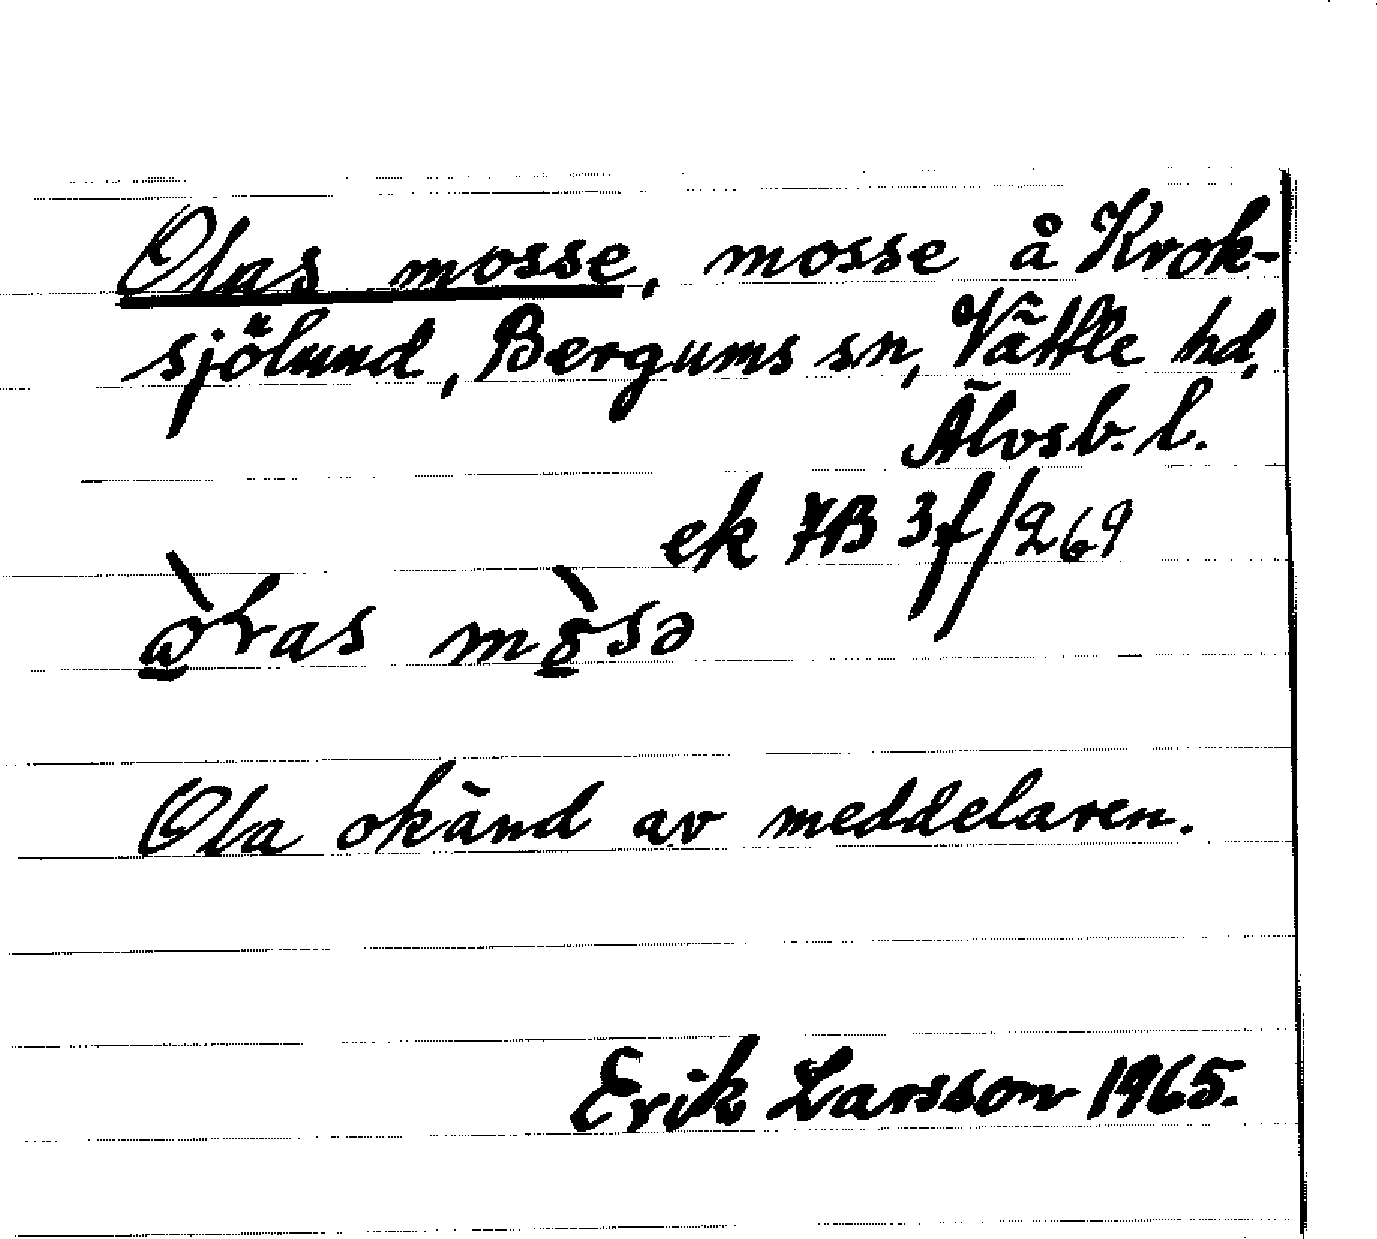 Olas mosse, mosse å Krok-
sjölund, Bergums sn, Vättle hd,
Älvsb. l.
ek 7B 3f/269
Ola okänd av meddelaren.
Erik Larsson 1965.